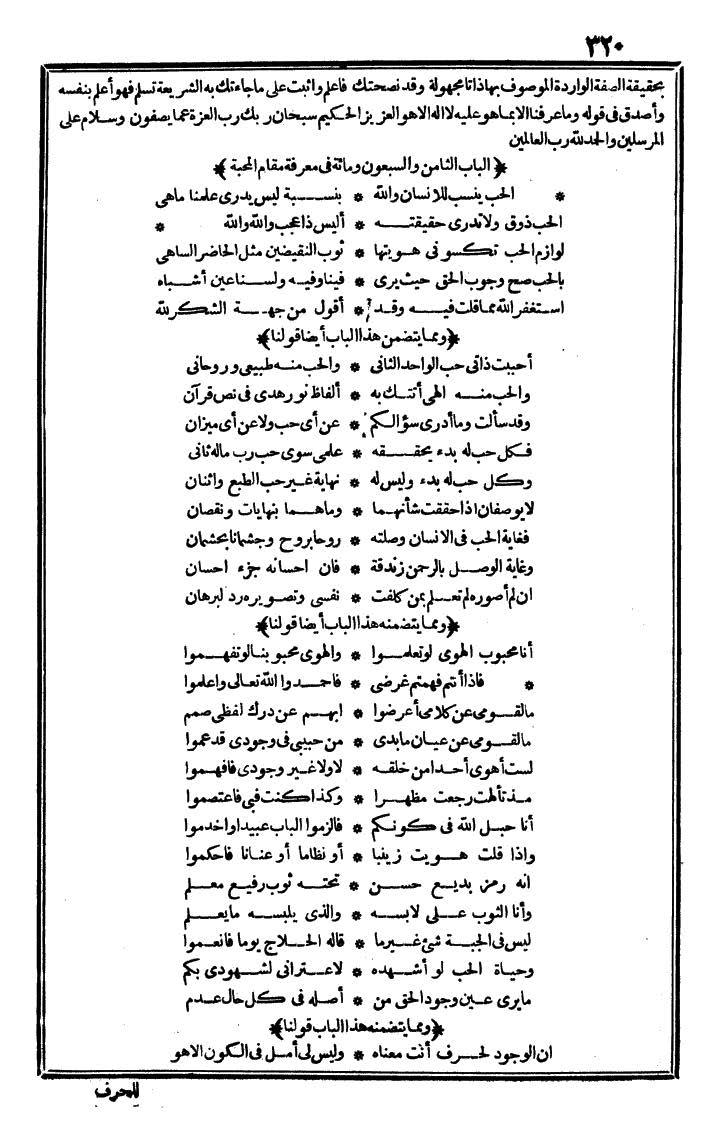 ٣٢٠
بحقيقة الصفة الواردة الموصوف بهاذاتا مجهولة وقد نصحتك فاعلم واثبت على ماجاءتك به الشريعة تسلم فهو أعلم بنفسه
وأصدق فى قوله وماعرفنا الابماهو عليه لااله الاهو العزيز الحكيم سبحان ربك رب العزة عمايصفون وسلام على
المرسلين والحمدلله رب العالمين
﴿الباب الثامن والسبعون ومائة فى معرفة مقام المحبة﴾
* الحب ينسب للانسان والله * بنسبة ليس يدرى علمنا ماهى
الحب ذوق ولاتدرى حقيقته * أليس ذاعجب والله والله *
لوازم الحب تكسونى هويتها * ثوب النقيضين مثل الحاضر الساهى
بالحب صح وجوب الحق حيث يرى * فينا وفيه ولسنا عين أشباه
استغفر الله مماقلت فيه وقد * أقول من جهة الشكر لله
﴿ومما يتضمن هذا الباب أيضا قولنا﴾
أحببت ذاتى حب الواحد الثانى * والحب منه طبيعى وروحانى
والحب منه الهى أتتك به * ألفاظ نور هدى فى نص قرآن
وقد سألت وماأدرى سؤالكم * عن أى حب ولاعن أى ميزان
فكل حب له بدء يحققه * علمى سوى حب رب ماله ثانى
وكل حب له بدء وليس له * نهاية غير حب الطبع واثنان
لايوصفان اذا حققت شأنهما * وماهما بنهايات ونقصان
فغاية الحب فى الانسان وصلته * روحا بروح وجثمانا بجثمان
وغاية الوصل بالرحمن زندقة * فان احسانه جزء احسان
ان لم أصوره لم تعلم بمن كلفت * نفسى وتصويره رد لبرهان
﴿ومما يتضمنه هذا الباب أيضا قولنا﴾
أنا محبوب الهوى لو تعلموا * والهوى محبوبنا لو تفهموا
* فاذا أنتم فهمتم غرضى * فاحمدوا الله تعالى واعلموا
مالقومى عن كلامى أعرضوا * ابهم عن درك لفظى صمم
مالقومى عن عيان مابدى * من حبيبى فى وجودى قدعموا
لست أهوى أحدا من خلقه * لا ولا غير وجودى فافهموا
مذ تألهت رجعت مظهرا * وكذا كنت فبى فاعتصموا
أنا حبل الله فى كونكم * فالزموا الباب عبيدا واخدموا
واذا قلت هويت زينبا * أو نظاما أو عنانا فاحكموا
انه رمز بديع حسن * تحته ثوب رفيع معلم
وأنا الثوب على لابسه * والذى يلبسه مايعلم
ليس فى الجبة شئ غيرما * قاله الحلاج يوما فانعموا
وحياة الحب لو أشهده * لاعترانى لشهودى بكم
مايرى عين وجود الحق من * أصله فى كل حال عدم
﴿ومما يتضمنه هذا الباب قولنا﴾
ان الوجود لحرف أنت معناه * وليس لى أمل فى الكون الاهو
للحرف